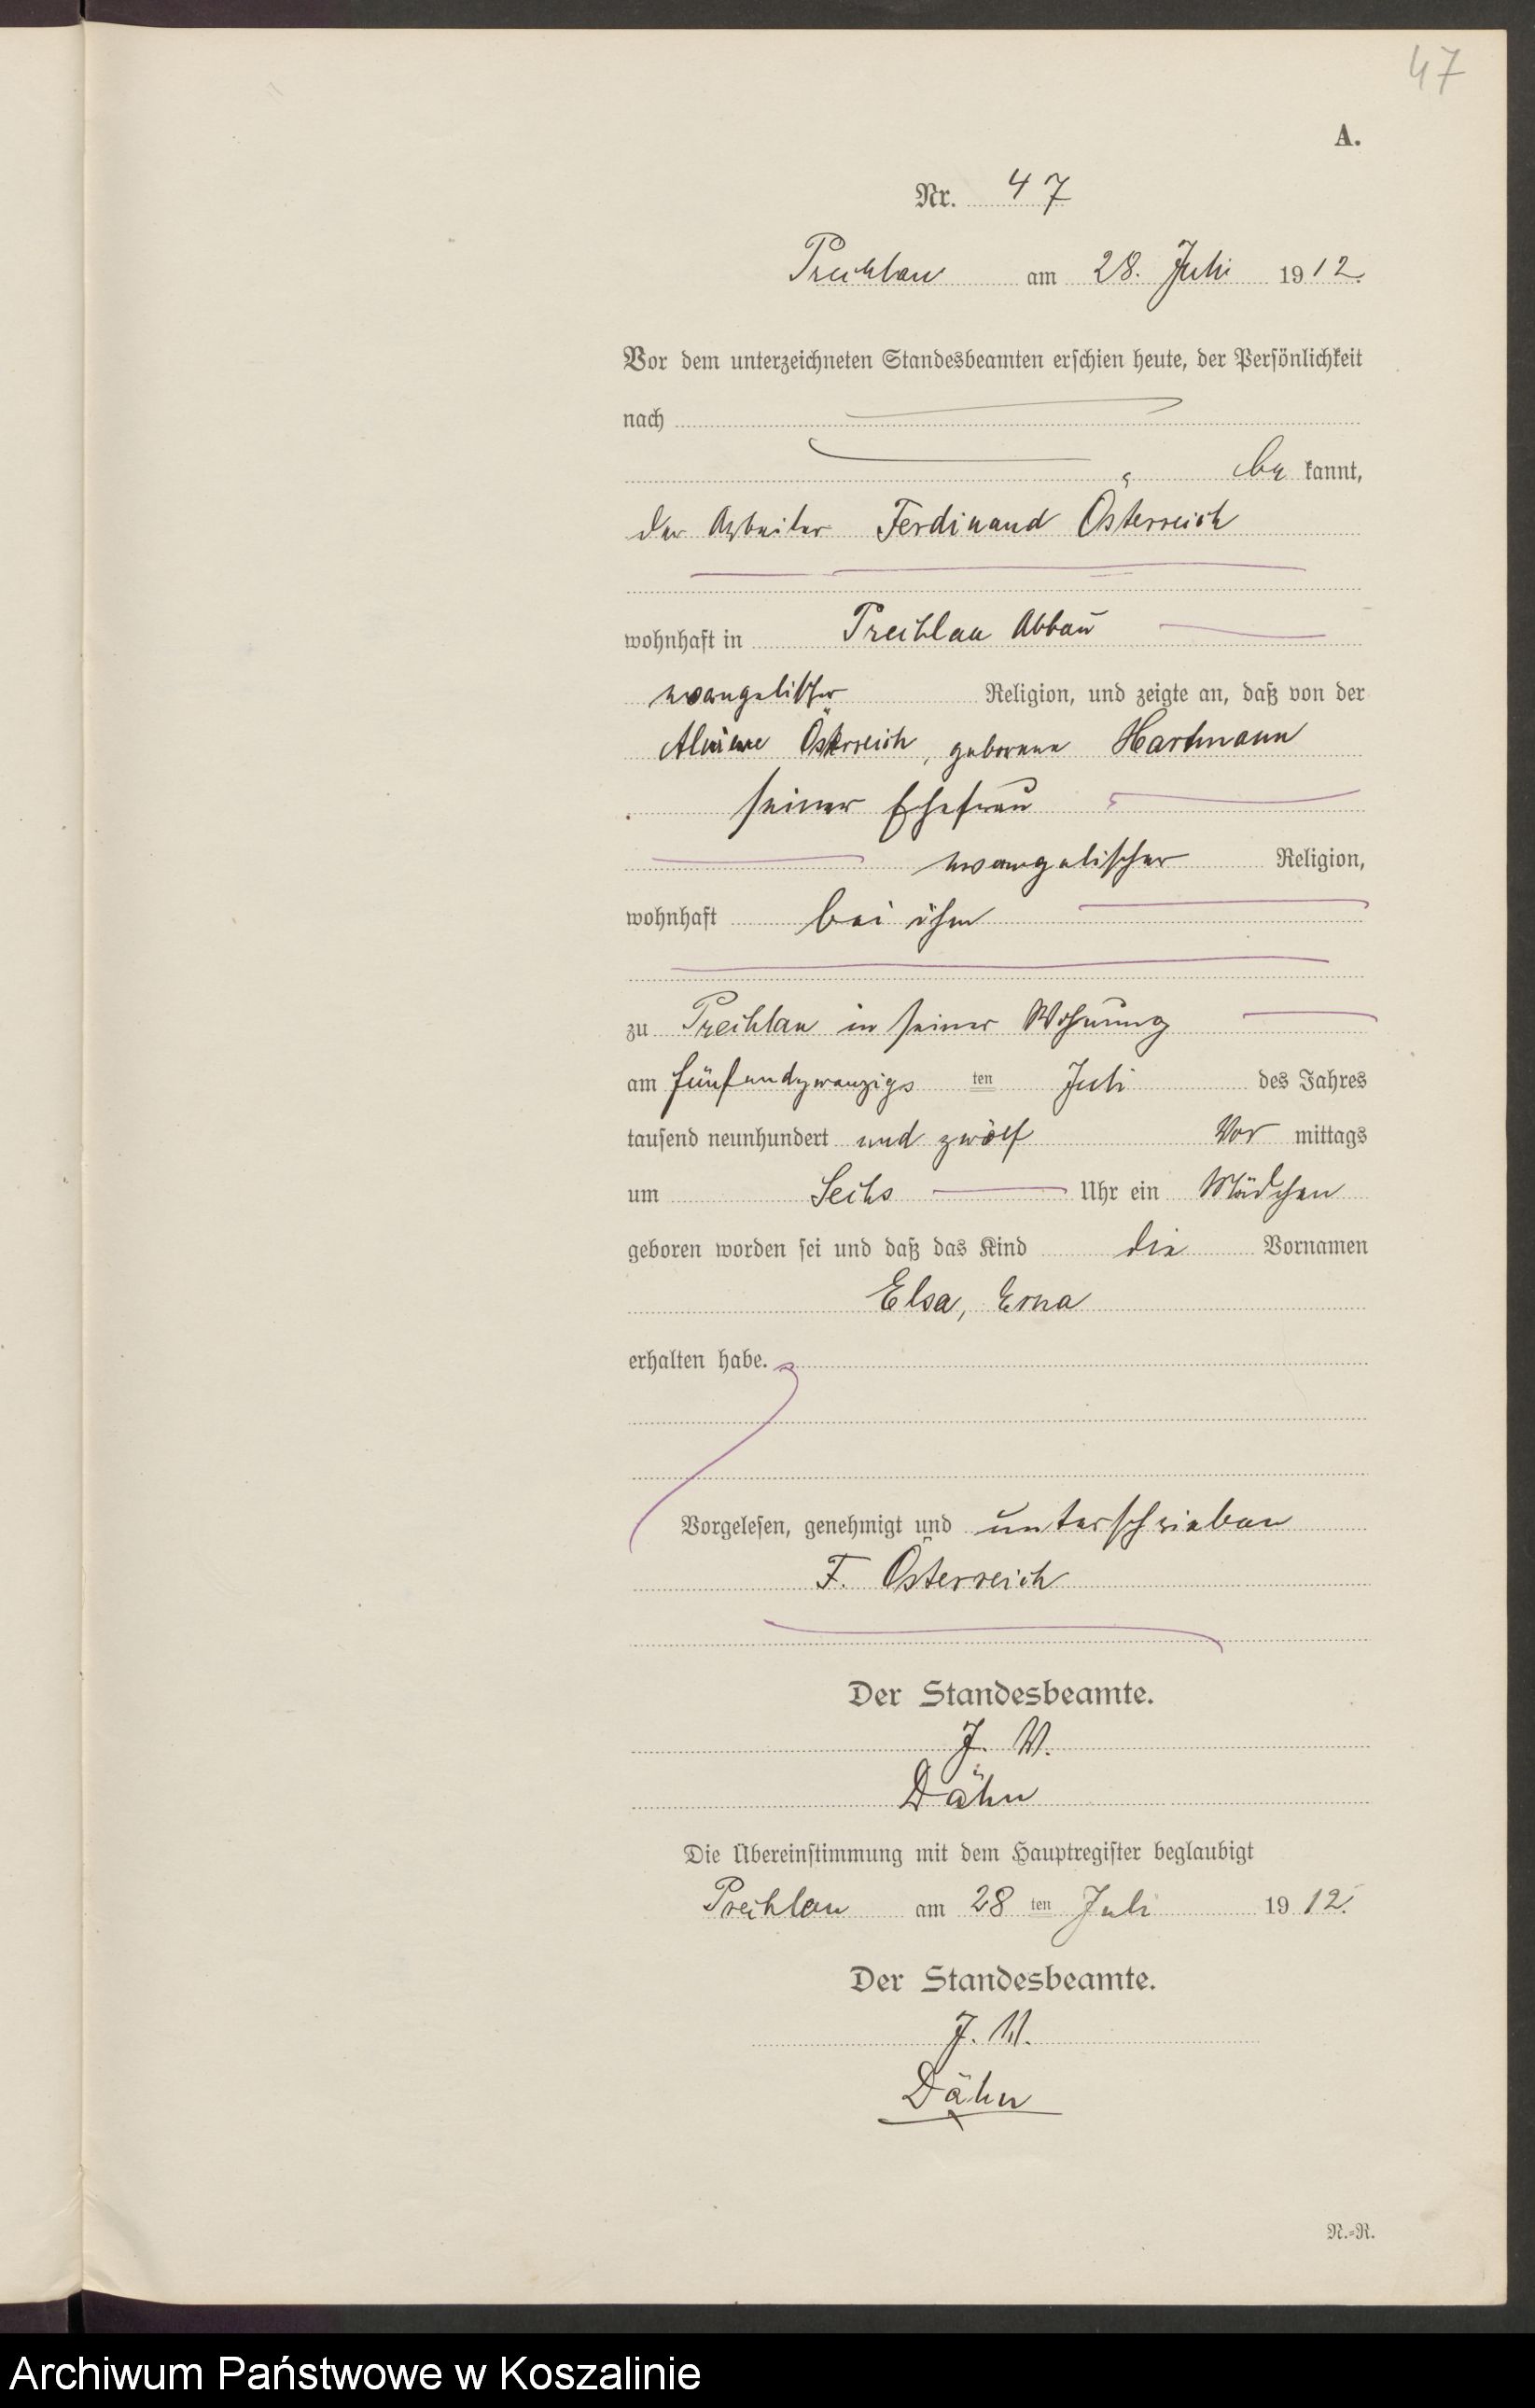 47
A.
Nr. 47
Prechlau am 28. Juli 1912.
Vor dem unterzeichneten Standesbeamten erschien heute, der Persönlichkeit
nach
be kannt,
der Arbeiter Ferdinand Österreich
wohnhaft in Prechlau Abbau
evangelischer Religion, und zeigte an, daß von der
Österreich, geborene Hartmann
seiner Ehefrau
evangelischer Religion,
wohnhaft bei ihm
zu Prechlau in seiner Wohnung
am fünfundzwanzigs ten Juli des Jahres
tausend neunhundert und zwölf Vor mittags
um Sechs Uhr ein Mädchen
geboren worden sei und daß das Kind die Vornamen
Elsa, Erna
erhalten habe.
Vorgelesen, genehmigt und unterschrieben
F. Österreich
Der Standesbeamte.
J. V.
Dähn
Die Übereinstimmung mit dem Hauptregister beglaubigt
Prechlau am 28 ten Juli 1912.
Der Standesbeamte.
J. V.
Dähn
N.=R.
Archiwum Państwowe w Koszalinie